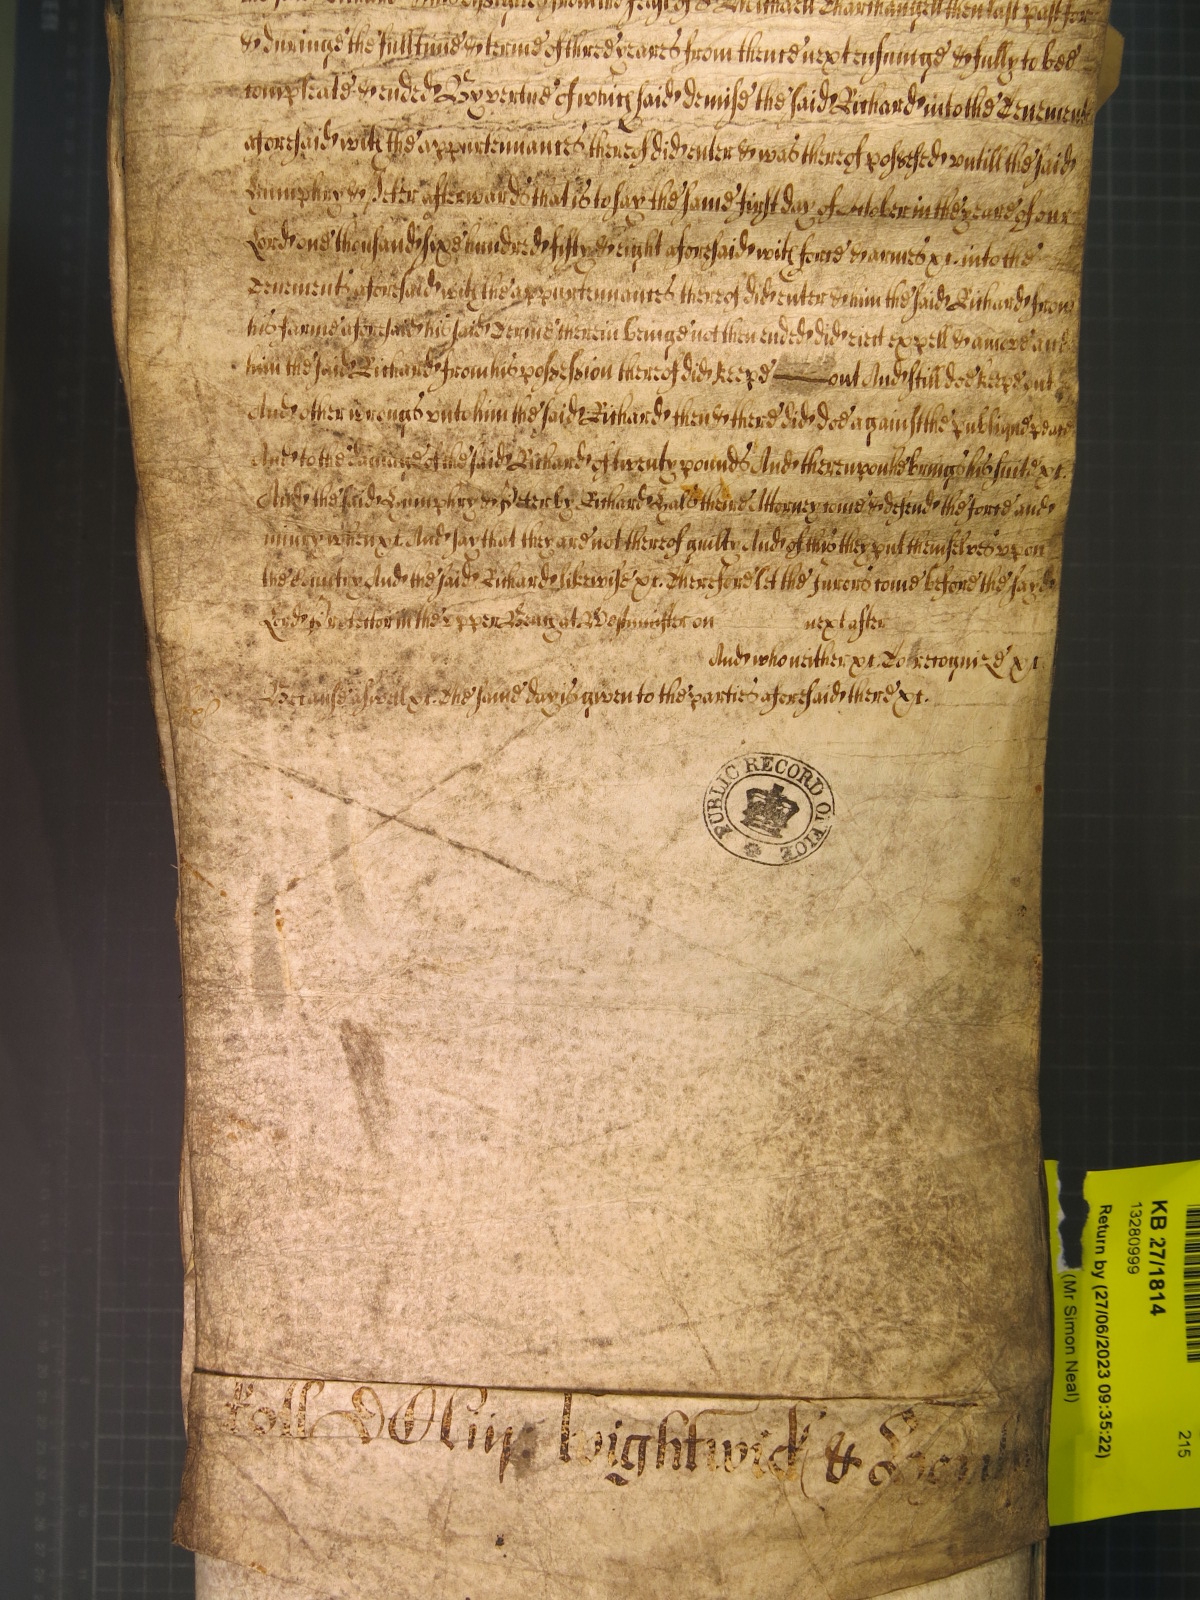 the said Richard & his assignes from the feast of St Michaell Tharchangell then last past for
& duringe the full tyme & terme of three yeares from thence next ensuinge & fully to bee
compleate & ended By vertue of which said demise the said Richard into the Tenements
aforesaid with the appurtennances thereof did enter & was thereof possessed untill the said
Humphry & Peter afterwards that is to say the same first day of October in the yeare of our
Lord one thousand sixe hundred fifty & eight aforesaid with force & armes xc. into the
Tenements aforesaid with the appurtennances thereof did enter & him the said Richard from
his farme aforesaid his said Terme therein beinge not then ended did eiect expell & amove and
him the said Richard from his possession thereof did keepe out And still doe keepe out
And other wrongs unto him the said Richard then & there did doe against the publique peace
And to the damage of the said Richard of twenty pounds And thereupon he brings his suite xc.
And the said Humphry & Peter by Richard Hals theire Attorney come & defend the force and
iniury when xc. And say that they are not thereof guilty And of this they put themselves upon
the Country And the said Richard likewise xc. Therefore let the Jurors come before the sayd
Lord Protector in the upper Bench at Westminster on next after
And who neither xc. To recognize xc.
Because aswell xc. The same day is given to the parties aforesaid there xc.
PUBLIC RECORD OFFICE
Roll & Oliv: Wightwick &
KB 27/1814
13280999
Return by (27/06/2023 09:35:22)
(Mr Simon Neal)
215